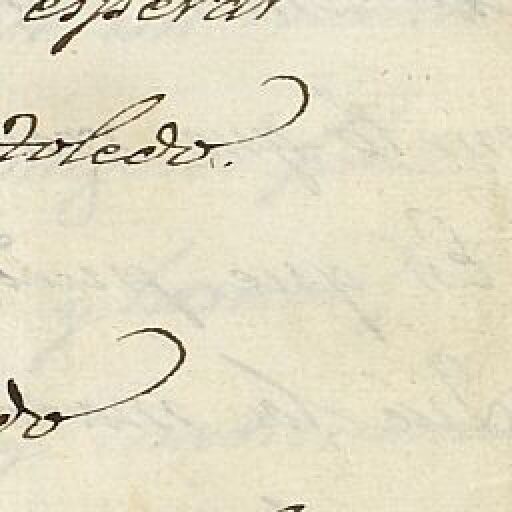 esperar
toledo.
do